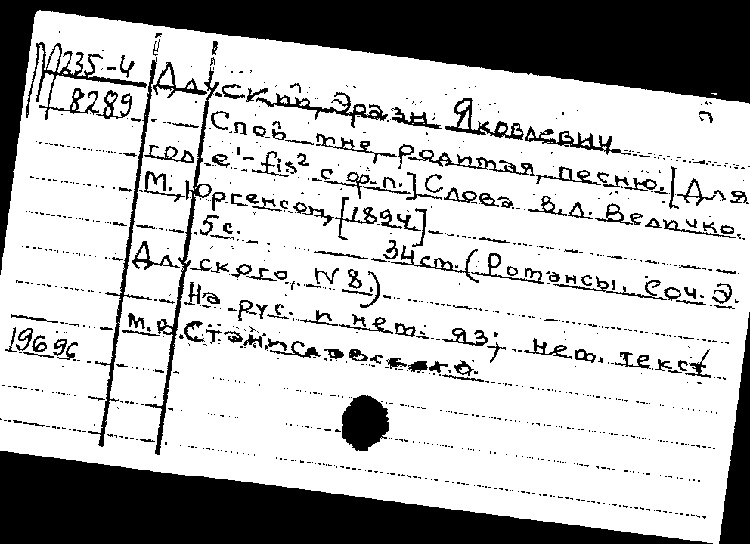 235-4
8289
Длуский, Эразм Яковлевич
Спой мне, родимая, песню. [Для
гол. e'-fis² с ф.п.] Слова В.Л. Величко.
М., Юргенсон, [1894]
5 с. 34 см. (Романсы. Соч. Э.
Длуского, N 8.)
На рус. и нем. яз; нем. текст
М.В. Станиславского.
19696